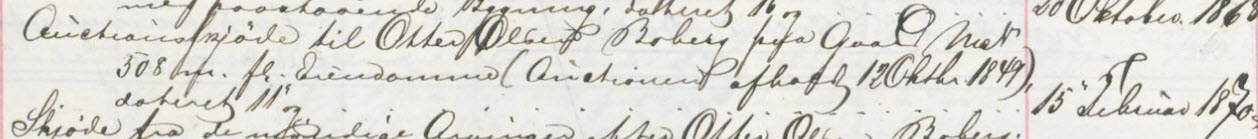 med paastaaende Bygning, dateret 16 og 20 Oktober. 186
Auctionsskjøde til Otter Olsen Boberg paa Gaard Matr
308 m. fl. Eiendomme (Auctionen afholdt 12 Oktbr. 1849),
dateret 11 og 15 Februar 1870
Skjøde fra de myndige Arvinger efter Otter Ols. Boberg.